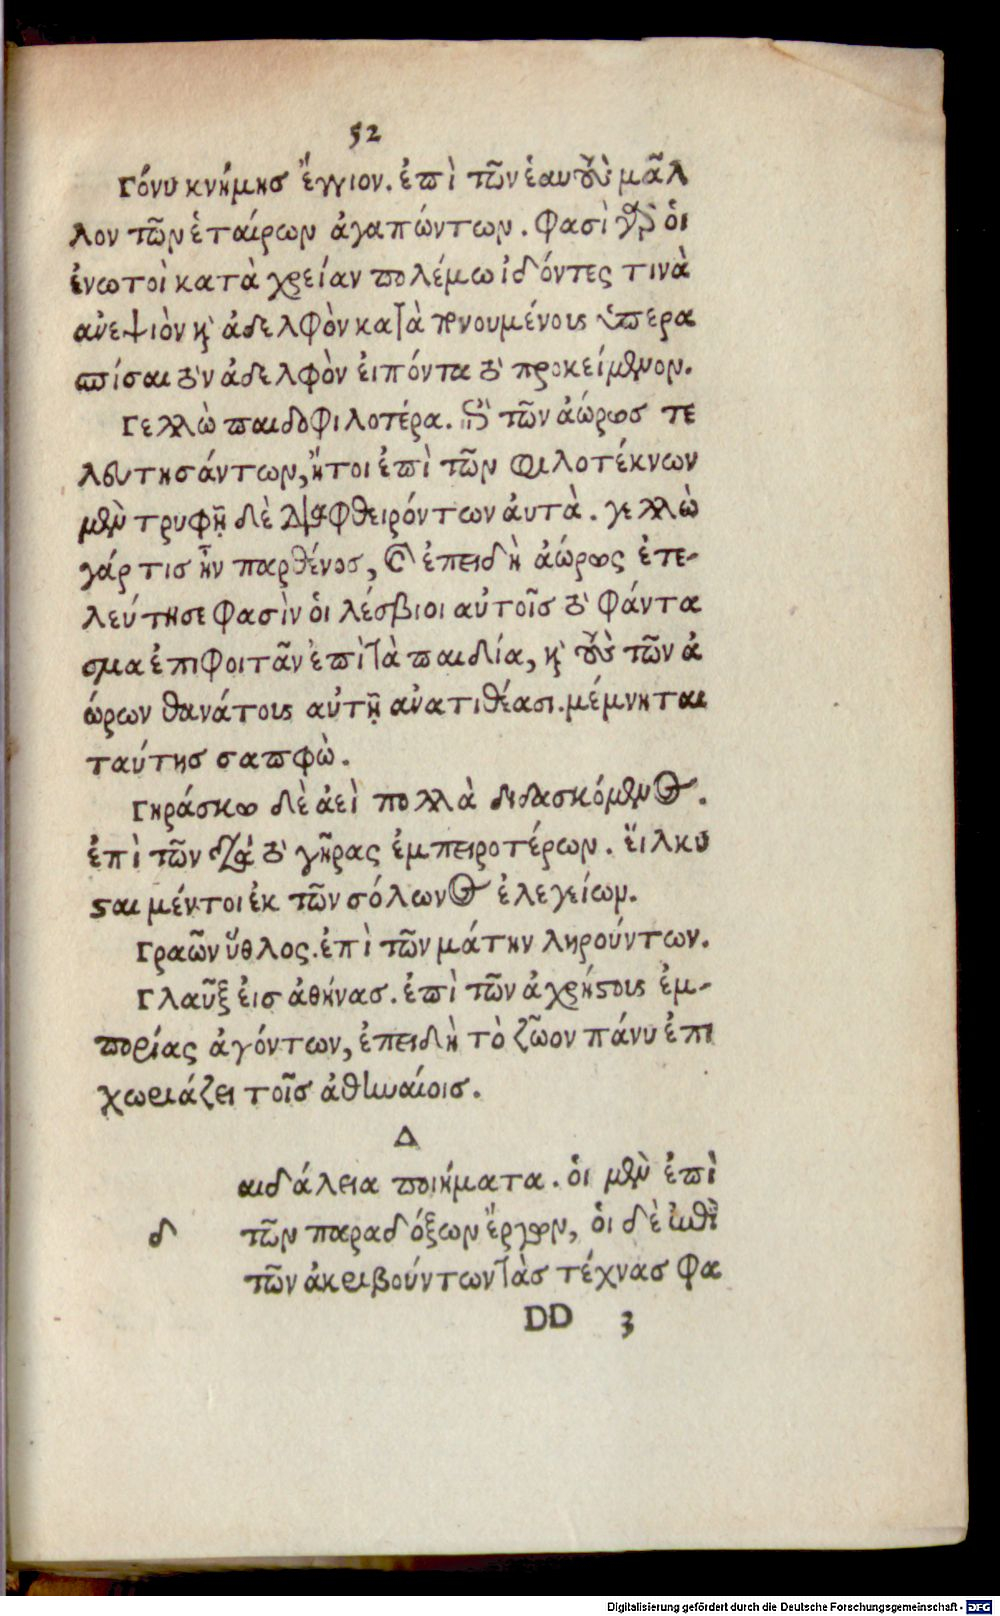 52
Γόνυ κνήμησ ἔγγιον. ἐπὶ τῶν ἑαυτοὺς μᾶλ
λον τῶν ἑταίρων ἀγαπώντων. φασὶ γὰρ ὁι
ἐνωτοὶ κατὰ χρείαν πολέμω ἰδόντες τινὰ
ἀνεψιὸν κὶ ἀδελφὸν κατὰ πονουμένους ὑπερα
σπίσαι τὸν ἀδελφὸν ἐιπόντα τὸ προκείμενον.
Γελλὼ παιδοφιλοτέρα. ἐπὶ τῶν ἀώρως τε
λευτησάντων, ἤτοι ἐπὶ τῶν φιλοτέκνων
μὲν τρυφῇ δὲ διαφθειρόντων ἀυτὰ. γελλὼ
γάρ τισ ἦν παρθένοσ, καὶ ἐπειδὴ ἀώρως ἐτε-
λεύτησε φασὶν ὁι λέσβιοι αὐτοῖσ τὸ φάντα
σμα ἐπιφοιτᾶν ἐπὶ τὰ παιδία, κὶ τοὺς τῶν ἀ
ώρων θανάτους αὐτῇ ἀνατιθέασι. μέμνηται
ταύτησ σαπφὼ.
Γηράσκω δὲ ἀεὶ πολλὰ διδασκόμενος.
ἐπὶ τῶν διὰ τὸ γῆρας ἐμπειροτέρων. ἕιλκυ
σαι μέντοι ἐκ τῶν σόλωνος ἐλεγείων.
Γραῶν ὕθλος. ἐπὶ τῶν μάτην ληρούντων.
Γλαῦξ ἐισ ἀθήνασ. ἐπὶ τῶν ἀχρήστους ἐμ-
πορίας ἀγόντων, ἐπειδὴ τὸ ζῶον πάνυ ἐπι
χωριάζει τοῖσ ἀθηναίοισ.
Δ
αιδάλεια ποιήματα. ὁι μὲν ἐπὶ
δ τῶν παραδόξων ἔργων, ὁι δὲ ἐπὶ
τῶν ἀκριβούντων τὰσ τέχνασ φα
DD 3
Digitalisierung gefördert durch die Deutsche Forschungsgemeinschaft - DFG